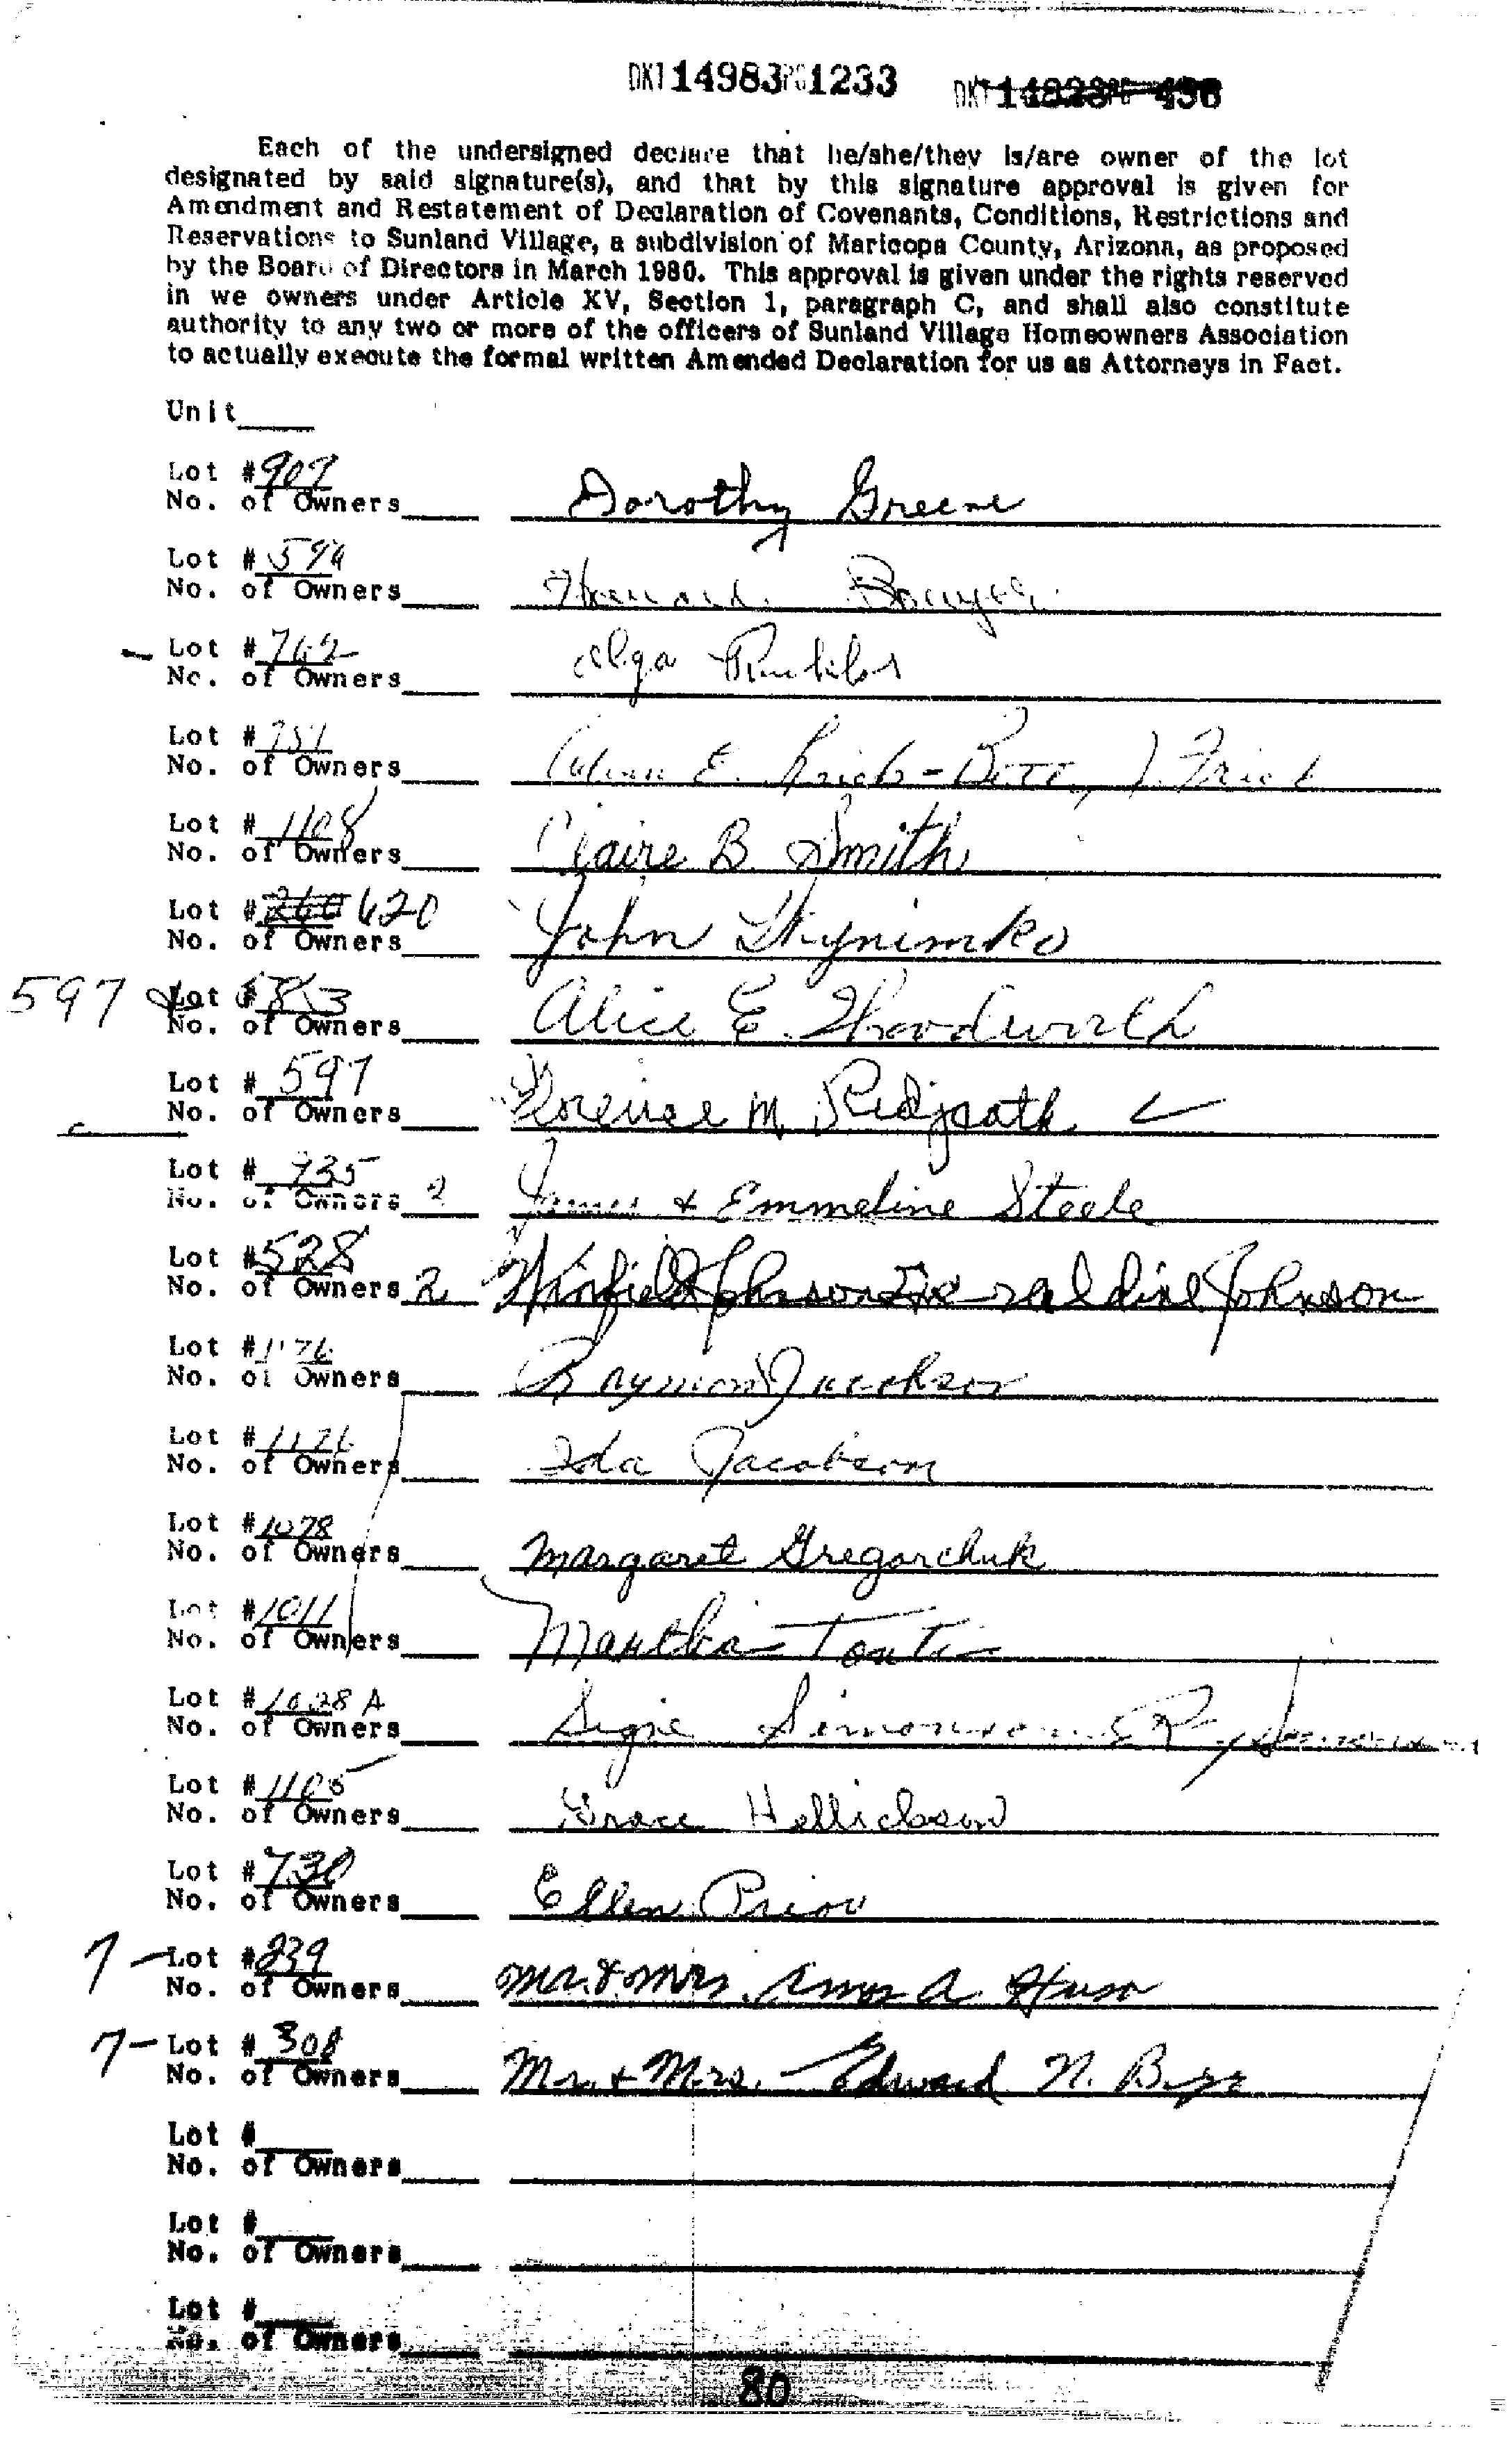 DKT 14983 PG 1233 DKT 14823 PG 436
Each of the undersigned declare that he/she/they is/are owner of the lot
designated by said signature(s), and that by this signature approval is given for
Amendment and Restatement of Declaration of Covenants, Conditions, Restrictions and
Reservations to Sunland Village, a subdivision of Maricopa County, Arizona, as proposed
by the Board of Directors in March 1980. This approval is given under the rights reserved
in we owners under Article XV, Section 1, paragraph C, and shall also constitute
authority to any two or more of the officers of Sunland Village Homeowners Association
to actually execute the formal written Amended Declaration for us as Attorneys in Fact.
Unit
Lot # 909
No. of Owners Dorothy Greene
Lot # 594
No. of Owners
Lot # 762
No. of Owners Olga
Lot # 751
No. of Owners E.
Lot # 1108
No. of Owners Claire B. Smith
Lot # 620
No. of Owners John
597 & Lot #
No. of Owners Alice E. Woodworth
Lot # 597
No. of Owners Florence M Ridpath
Lot # 735
No. of Owners 2 James & Emmeline Steele
Lot # 528
No. of Owners 2 Winfield Johnson Geraldine Johnson
Lot # 1176
No. of Owners Raymond Jacobson
Lot # 1176
No. of Owners Ida Jacobson
Lot # 1078
No. of Owners Margaret Gregorchuk
Lot # 1011
No. of Owners Martha
Lot # 1028 A
No. of Owners Signe Simonson
Lot # 1105
No. of Owners Grace Hellickson
Lot # 730
No. of Owners Ellen Prior
7 - Lot # 239
No. of Owners Mr. & Mrs. Amos A.
7 - Lot # 308
No. of Owners Mr. + Mrs. Edward N.
Lot #
No. of Owners
Lot #
No. of Owners
Lot #
No. of Owners
80